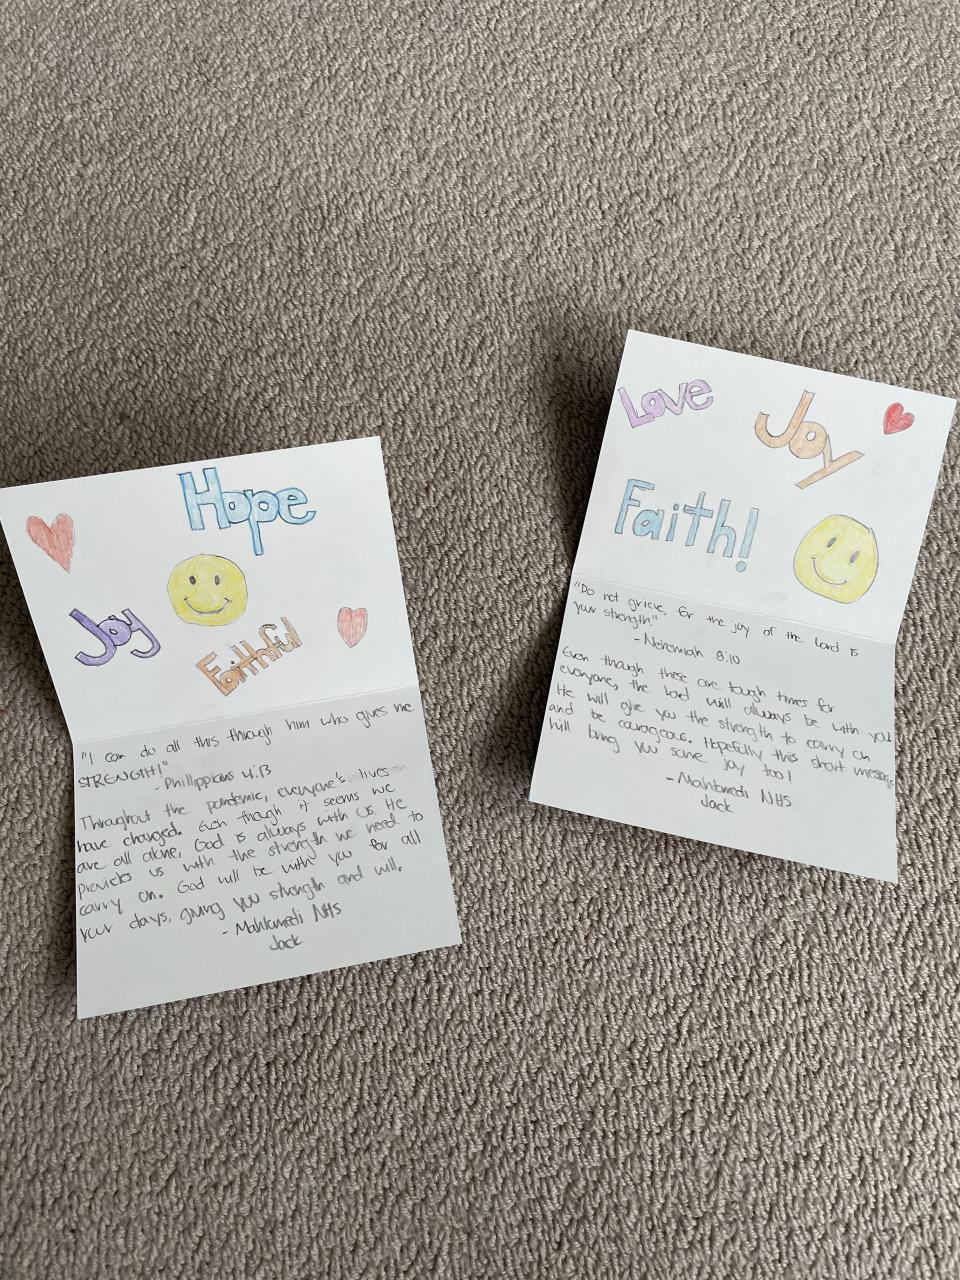 Hope
Joy
Faithful
"I can do all this through him who gives me
STRENGTH!"
- Philippians 4:13
Throughout the pandemic, everyone's lives
have changed. Even though it seems we
are all alone, God is always with us. He
provides us with the strength we need to
carry on. God will be with you for all
your days, giving you strength and will.
- Mahtomedi NHS
Jack
Love
Joy
Faith!
"Do not grieve, for the joy of the Lord is
your strength."
- Nehemiah 8:10
Even though these are tough times for
everyone, the Lord will always be with you.
He will give you the strength to carry on
and be courageous. Hopefully this short message
will bring you some joy too!
- Mahtomedi NHS
Jack